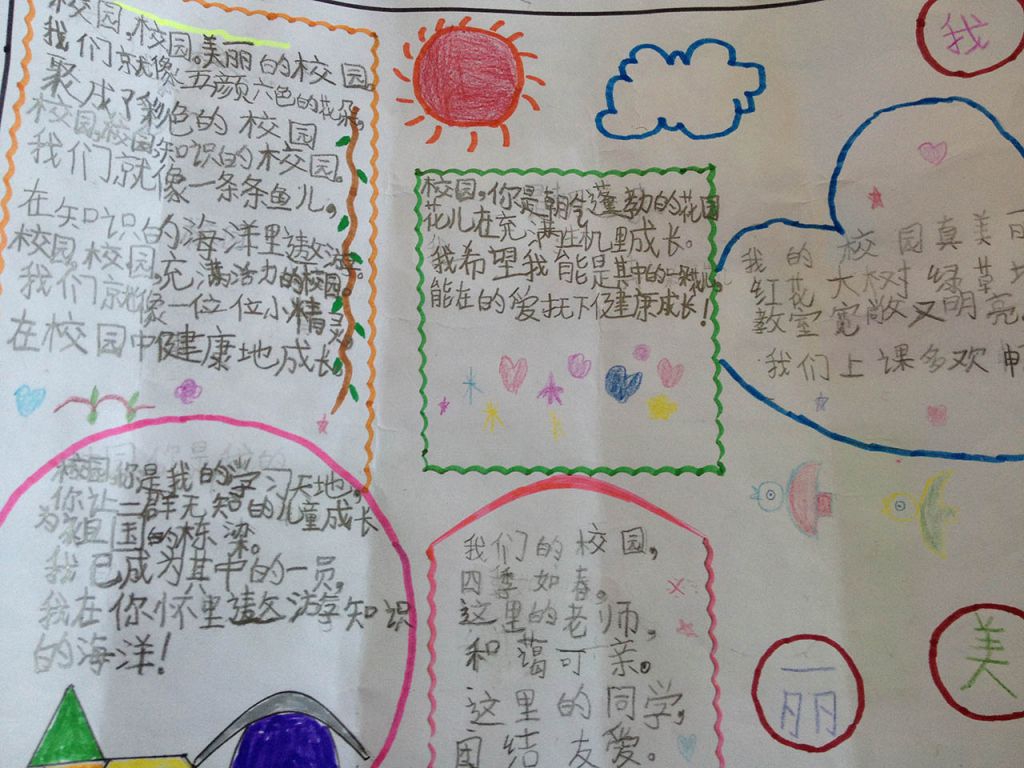 校园,校园。美丽的校园。
我们就像五颜六色的花朵,
聚成了彩色的校园
校园,校园知识的校园。
我们就像一条条鱼儿,
在知识的海洋里遨游。
校园,校园,充满活力的校园。
我们就像一位位小精灵。
在校园中健康地成长。
校园,你是朝气蓬勃的花园
花儿在充满生机里成长。
我希望我能是其中的一
能在的爱抚下健康成长!
我
我的校园真美
红花大树绿草
教室宽敞又明亮
我们上课多欢畅
校园你是我的学习天地,
你让一群无知的儿童成长
为祖国的栋梁。
我已成为其中的一员,
我在你怀里遨游知识
的海洋!
我们的校园,
四季如春。
这里的老师,
和蔼可亲。
这里的同学,
团结友爱。
丽
美